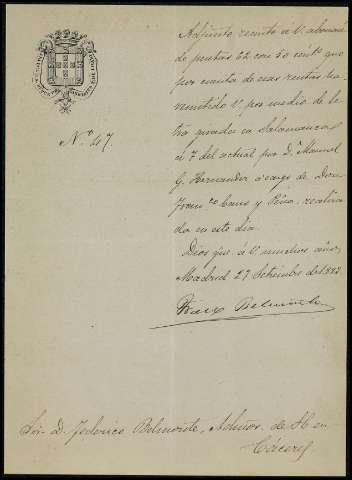 Nº. 47.
Adjunto remito á V. abonaré
de pesetas 52 con 50 cents que
por cuenta de esas rentas ha
remitido V. por medio de le-
tra girada en Salamanca
á 7 del actual por D. Manuel
G. Hernandez á cargo de Don
Franco Cano y realiza-
do en este dia.
Dios gue á V. muchos años
Madrid 27 Setiembre de
Sor. D. Federico Belmonte, Admor. de H en
Cáceres